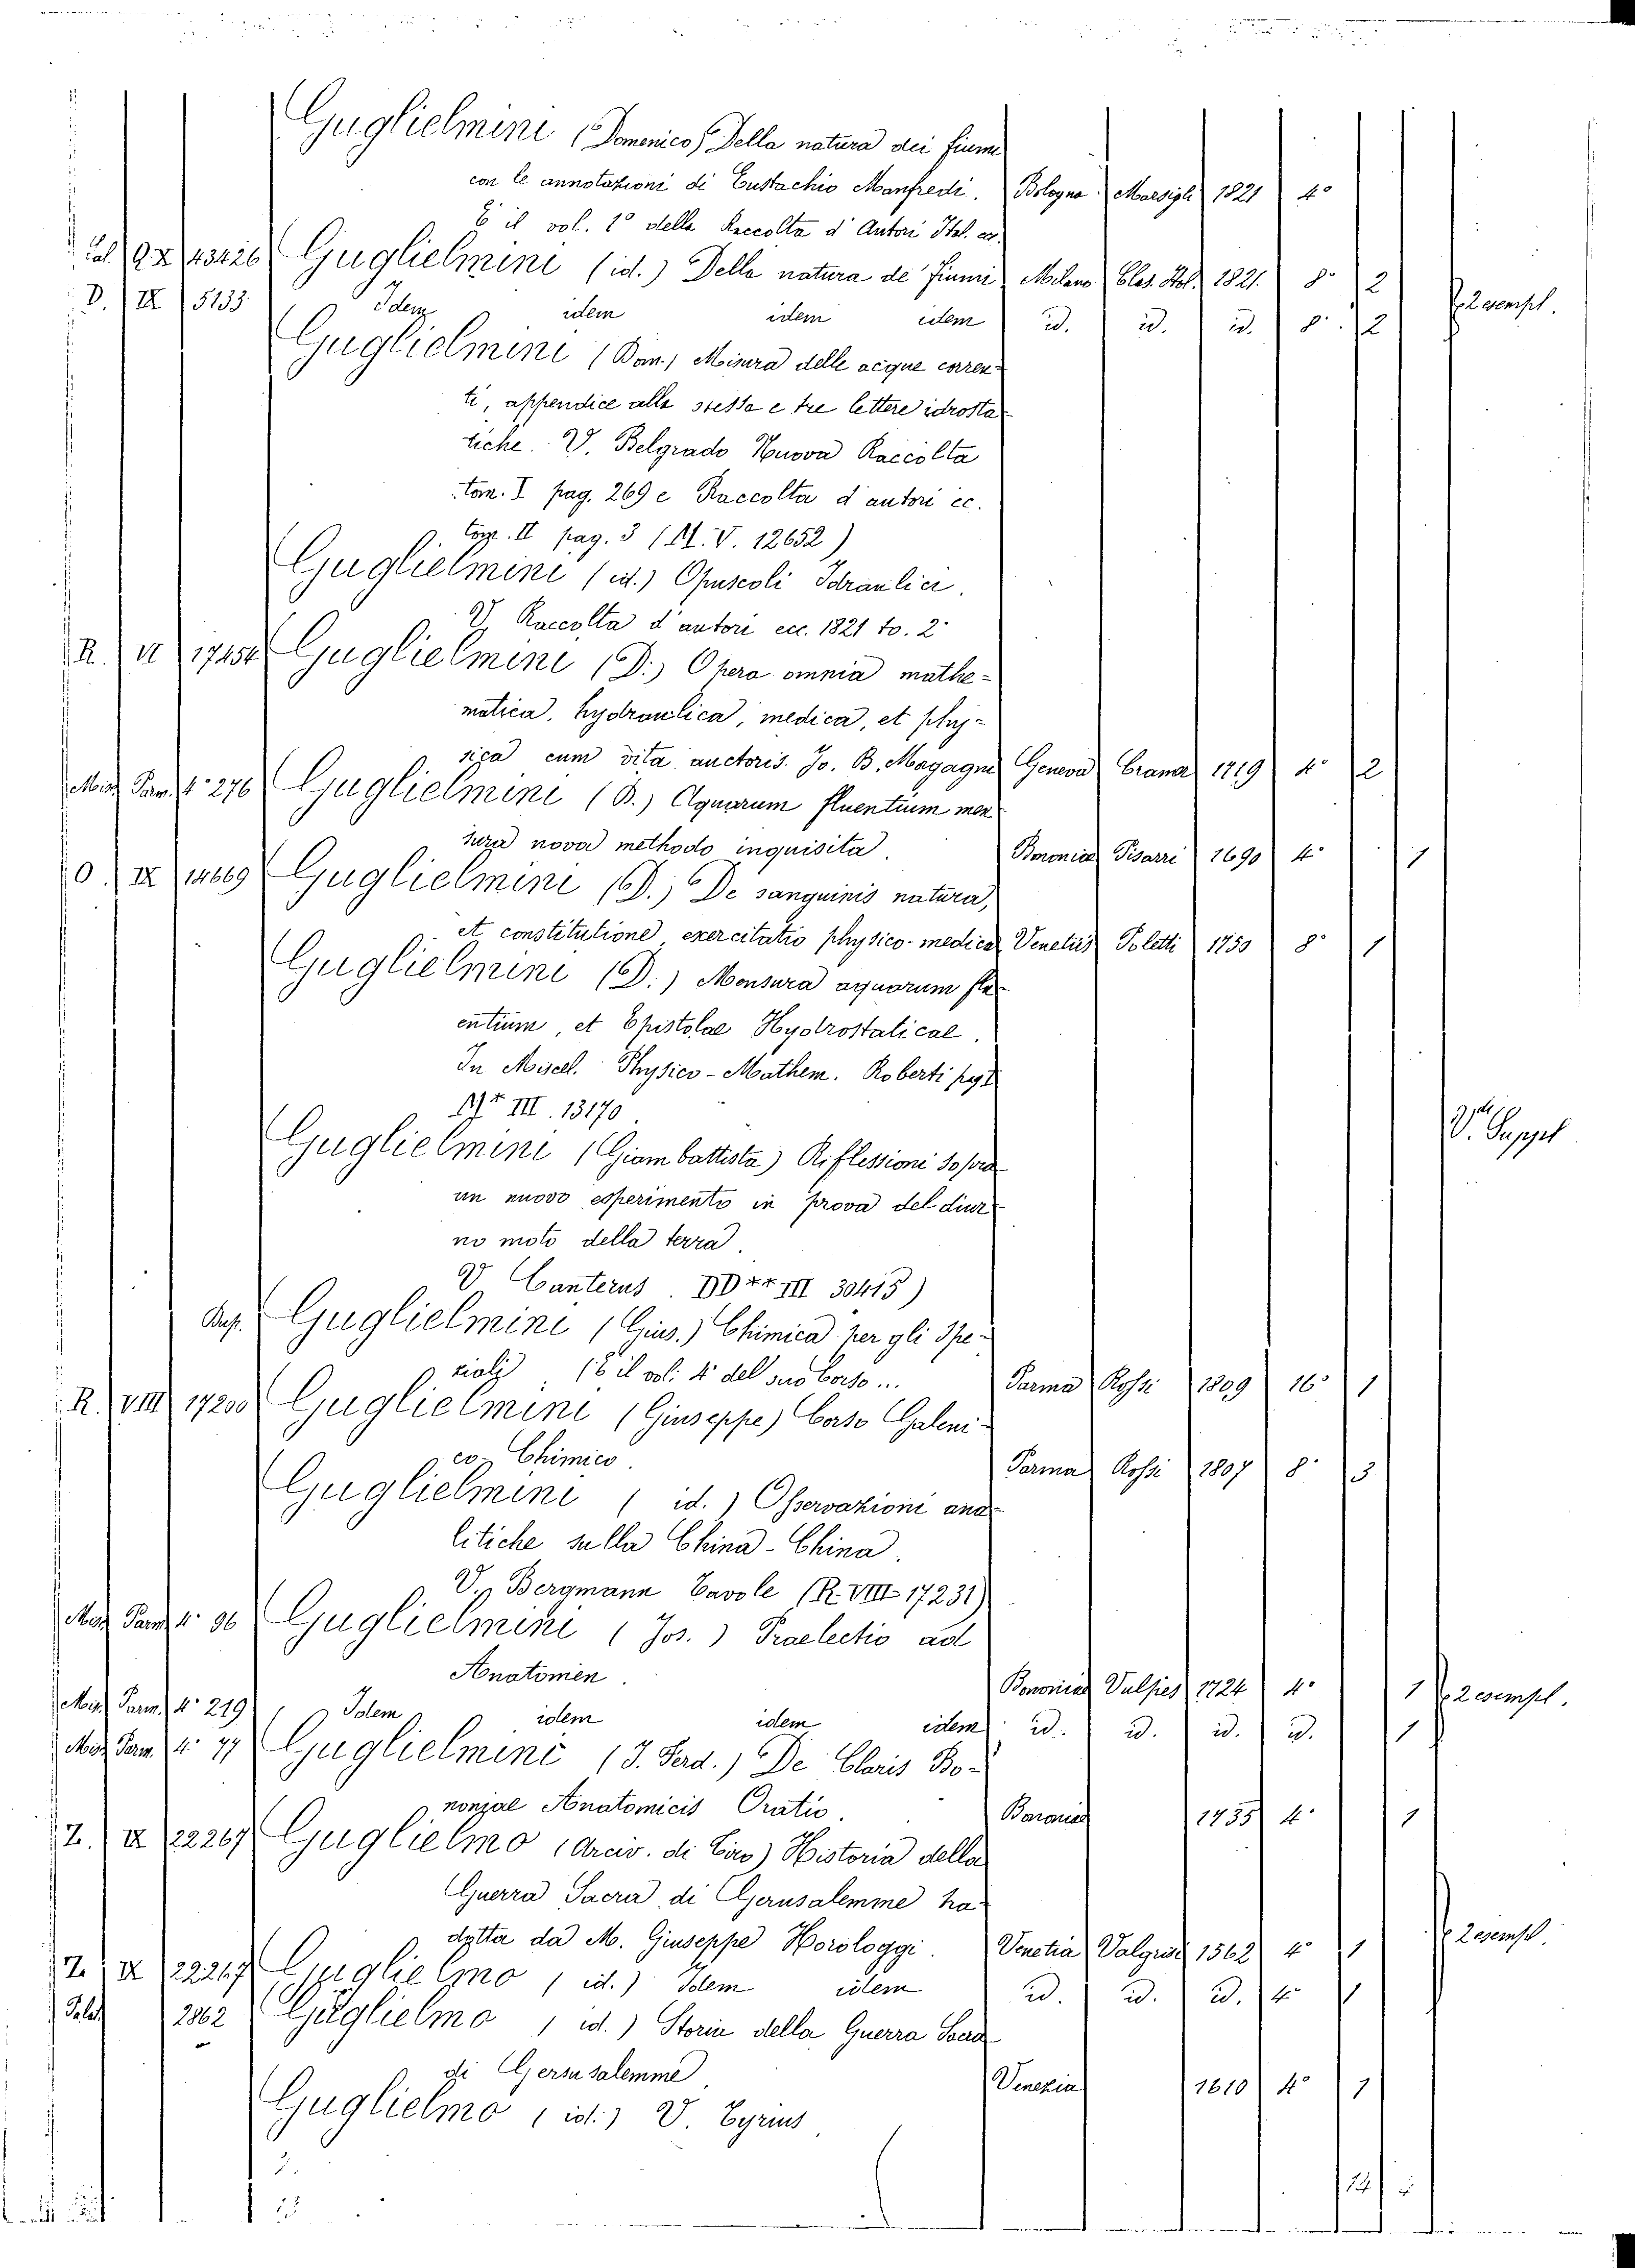 Guglielmini (Domenico) Della natura dei fiumi
con le annotazioni di Eustachio Manfredi. Bologna Marsigli 1821 4°
È il vol. 1° della Raccolta d'Autori Ital. ec.
Guglielmini (id.) Della natura de' fiumi Milano Clas. Ital. 1821. 8° 2
D. IX 5133 Idem idem idem idem id. id. id. 8° 2 2 esempl.
Guglielmini (Dom.) Misura delle acque corren-
ti, appendice alla stessa e tre lettere idrosta-
tiche. V. Belgrado Nuova Raccolta
tom. I pag. 269 e Raccolta d'autori ec.
tom. II pag. 3 (M. V. 12652)
Guglielmini (id.) Opuscoli Idraulici.
V. Raccolta d'autori ecc. 1821 to. 2°
R. VI 17454 Guglielmini (D.) Opera omnia mathe-
matica, hydraulica, medica, et phy-
sica cum vita auctoris. Jo. B. Magagni Geneva Cramer 1719 4° 2
Misc. Parm. 4° 276 Guglielmini (D.) Aquarum fluentium men
sura nova methodo inquisita. Bononiae Pisarri 1690 4° 1
O. IX 14669 Guglielmini (D.) De sanguinis natura,
et constitutione, exercitatio physico-medica Venetiis Poletti 1750 8° 1
Guglielmini (D.) Mensura aquarum flu-
entium, et Epistolae Hydrostaticae.
In Miscel. Physico-Mathem. Roberti pag.
III. 13170
Guglielmini (Giambattista) Riflessioni sopra
un nuovo esperimento in prova del diur-
no moto della terra.
V. Canterus. DD** III 30415)
V. Suppl
Sup. Guglielmini (Gius.) Chimica per gli Spe-
ziali. (È il vol. 4° del suo Corso... Parma Rossi 1809 16° 1
R. VIII 17200 Guglielmini (Giuseppe) Corso Galeni-
co-Chimico. Parma Rossi 1807 8° 3
Guglielmini (id.) Osservazioni ana-
litiche sulla China-China.
V. Bergmann Tavole (R. VIII 17231)
Misc. Parm. 4° 96 Guglielmini (Jos.) Praelectio ad
Anatomen. Bononiae Vulpies 1724 4° 1 2 esempl.
Misc. Parm. 4° 219 Idem idem idem idem id. id. id. id. 1
Misc. Parm. 4° 77 Guglielmini (J. Ferd.) De Claris Bo-
noniae Anatomicis Oratio. Bononiae 1735 4° 1
Z. IX 22267 Guglielmo (Arciv. di Tiro) Historia della
Guerra Sacra di Gierusalemme tra-
dotta da M. Giuseppe Horologgi. Venetia Valgrisi 1562 4° 1 2 esempl.
Z. IX 22267 Guglielmo (id.) Idem idem id. id. id. 4° 1
Palat. 2862 Guglielmo (id.) Storia della Guerra Sacra
di Gersusalemme Venezia 1610 4° 1
Guglielmo (id.) V. Tyrius